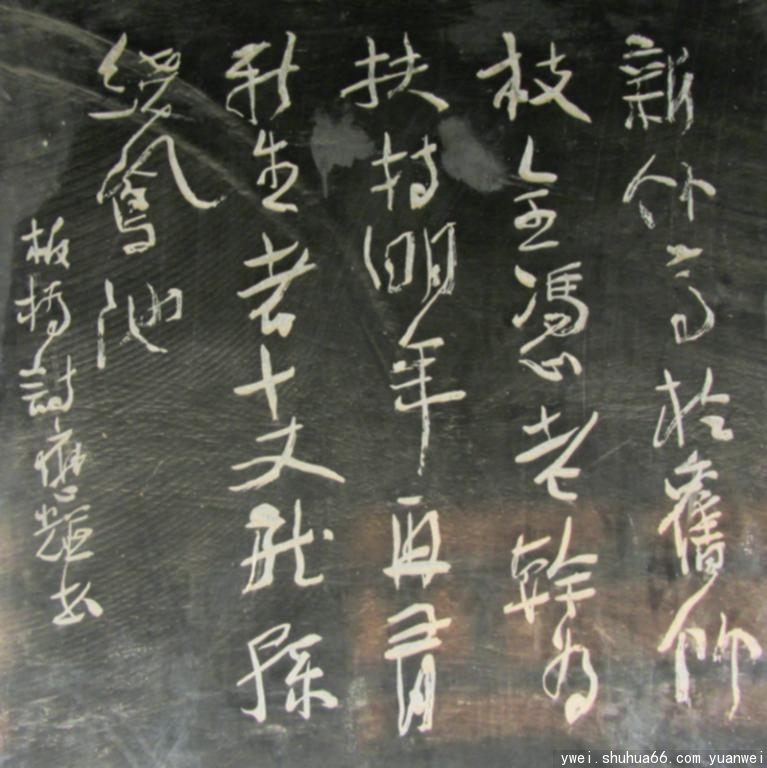 新竹高於舊竹
枝全憑老幹為
扶持明年再有
新生者十丈龍孫
繞鳳池
板橋詩應輝書
ywei.shuhua66.com yuanwei